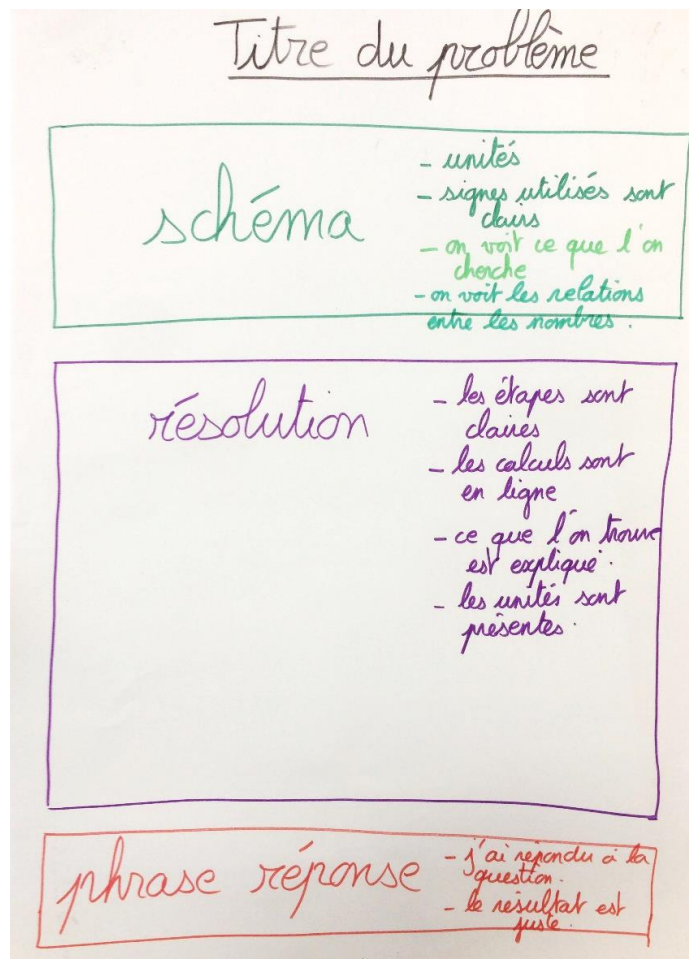 Titre du problème
schéma
- unités
- signes utilisés sont
clairs
- on voit ce que l'on
cherche
- on voit les relations
entre les nombres.
résolution
- les étapes sont
claires
- les calculs sont
en ligne
- ce que l'on trouve
est expliqué.
- les unités sont
présentes.
phrase réponse
- j'ai répondu à la
question.
- le résultat est
juste.